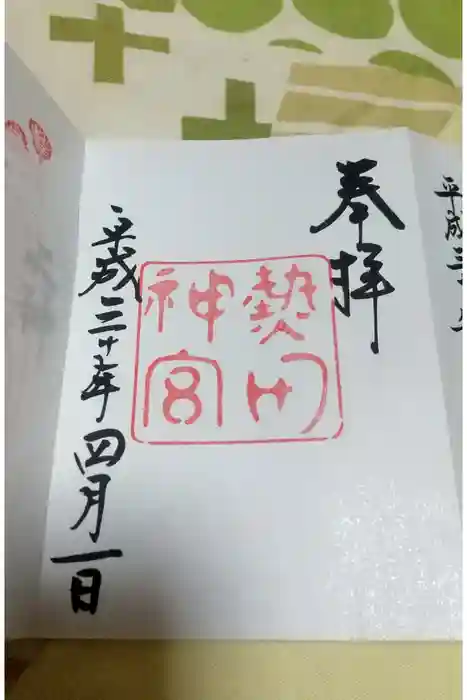 平成三
奉拝
熱田
神宮
平成三十年四月一日